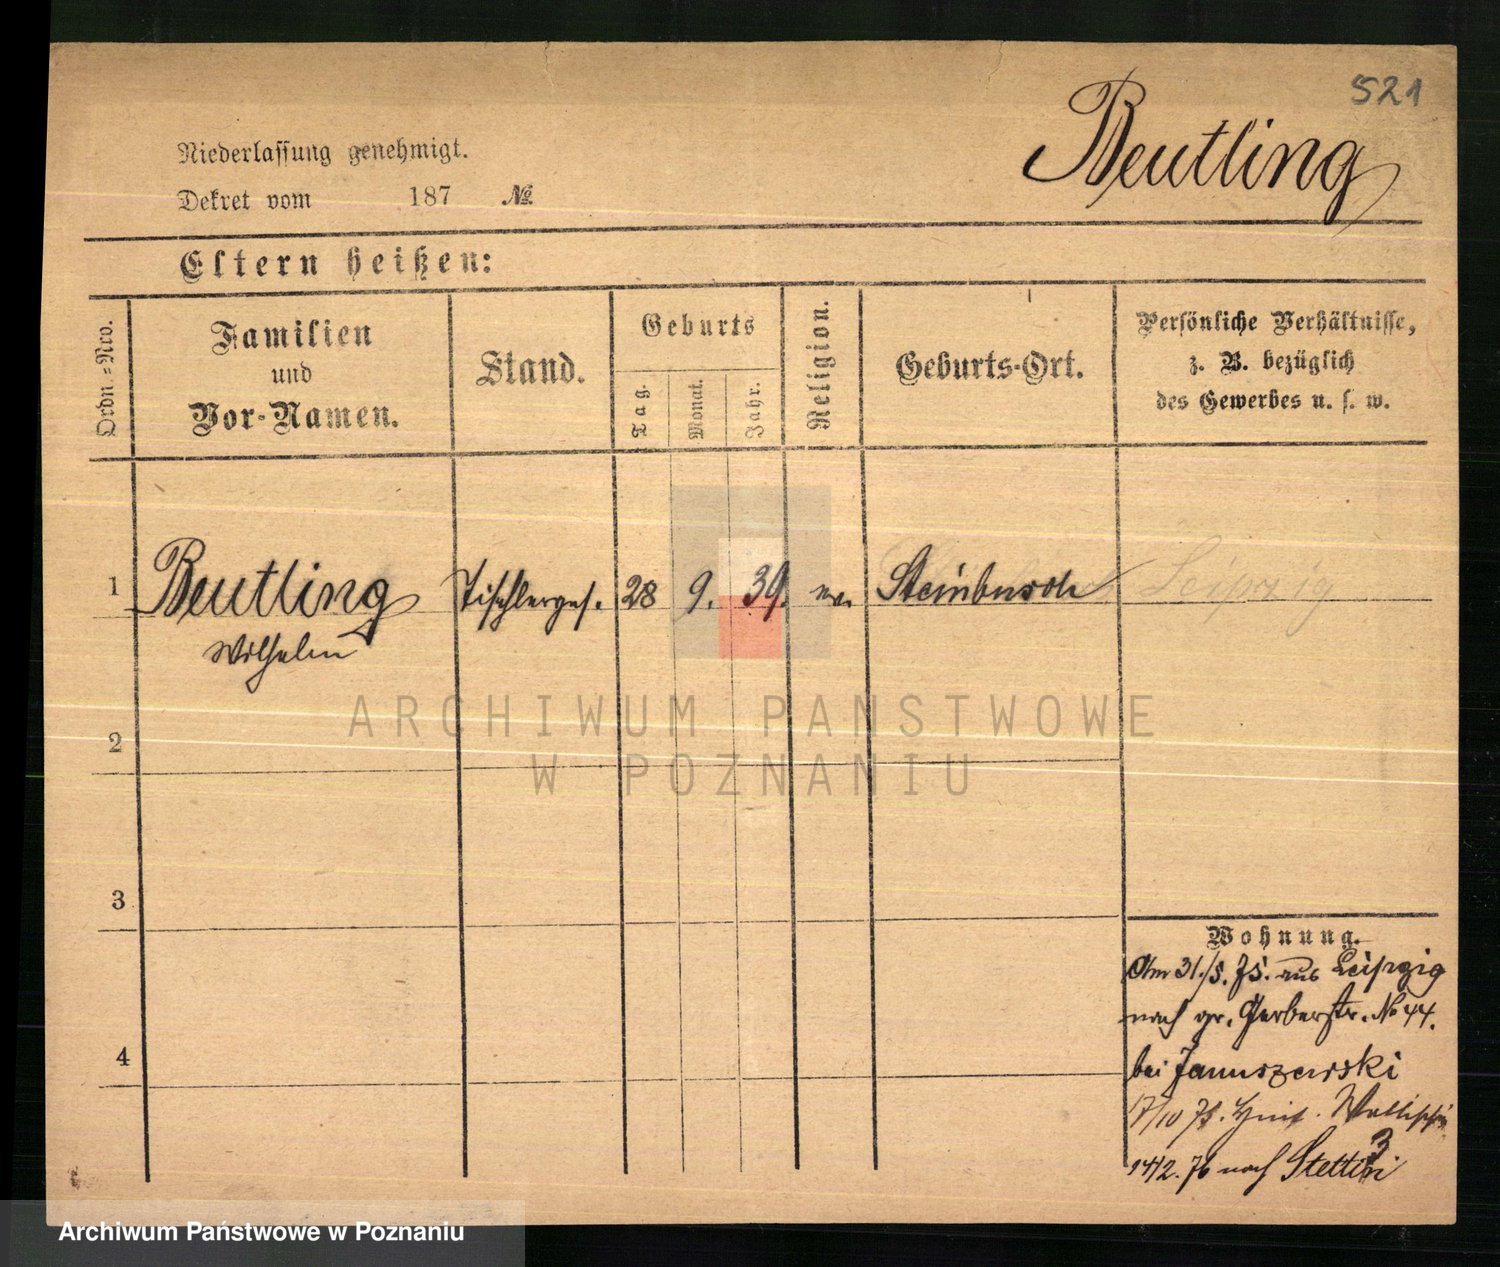 521
Beutling
Niederlassung genehmigt.
Dekret vom 187 №
Eltern heißen:
Ordn.=Nro.
Familien
und
Vor-Namen.
Stand.
Geburts
Tag.
Monat.
Jahr.
Religion.
Geburts-Ort.
Persönliche Verhältnisse,
z. B. bezüglich
des Gewerbes u. s. w.
1 Beutling Tischlerges. 28 9. 39. ev. Steinbusch Leipzig
Wilhelm
2
3
4
Wohnung.
Am 31./5. 75. aus Leipzig
nach gr. Gerberstr. No 44.
bei Januszewski
17/10 75. Wallischei
3
2. 76 nach Stettin
ARCHIWUM PANSTWOWE
W POZNANIU
Archiwum Państwowe w Poznaniu